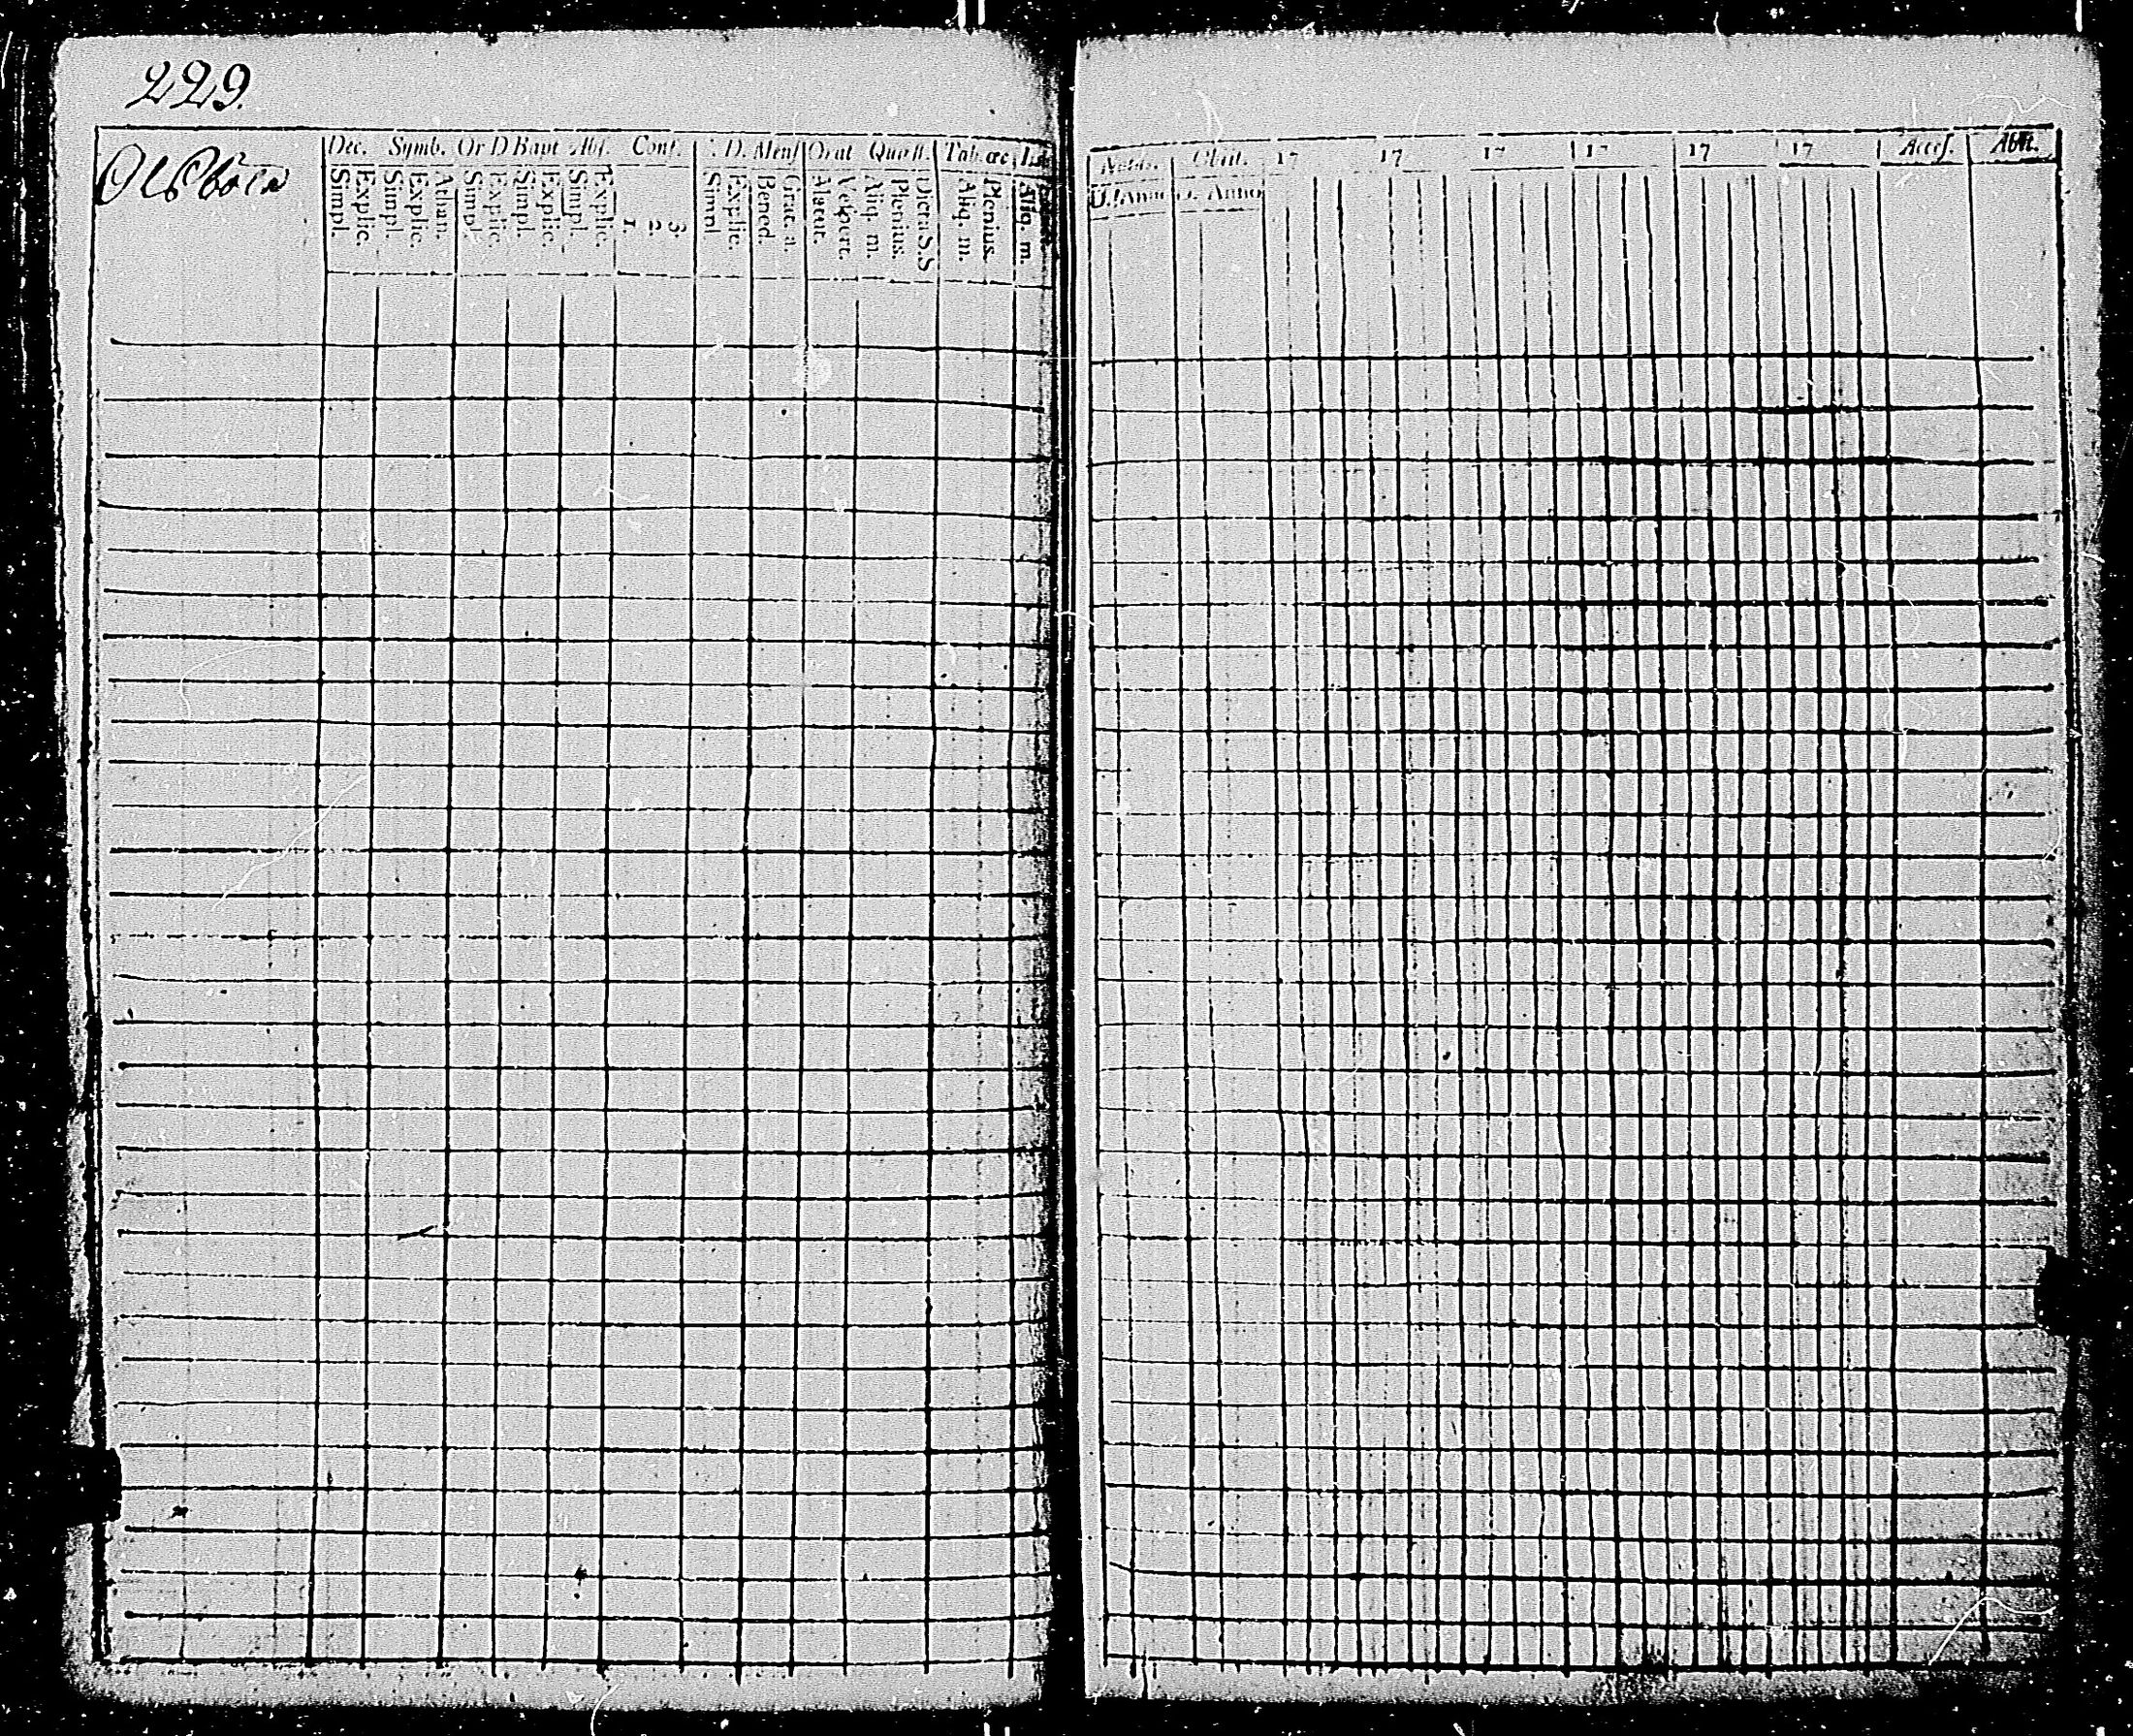 229.
Dec. Symb. Or D Bapt Abs. Conf. D. Mens Orat Quæst. Tab. œc
Simpl. Explic. Simpl. Explic. Athan. Simpl. Explic. Simpl. Explic. Simpl. Explic. 1. 2. 3. Simpl. Explic. Bened. Grat. a. Matut. Vespert. Aliq. m. Plenius. Dicta S.S Aliq. m. Plenius. Aliq. m.
Obiit. 17 17 17 17 17 17 Access. Abit.
Anno